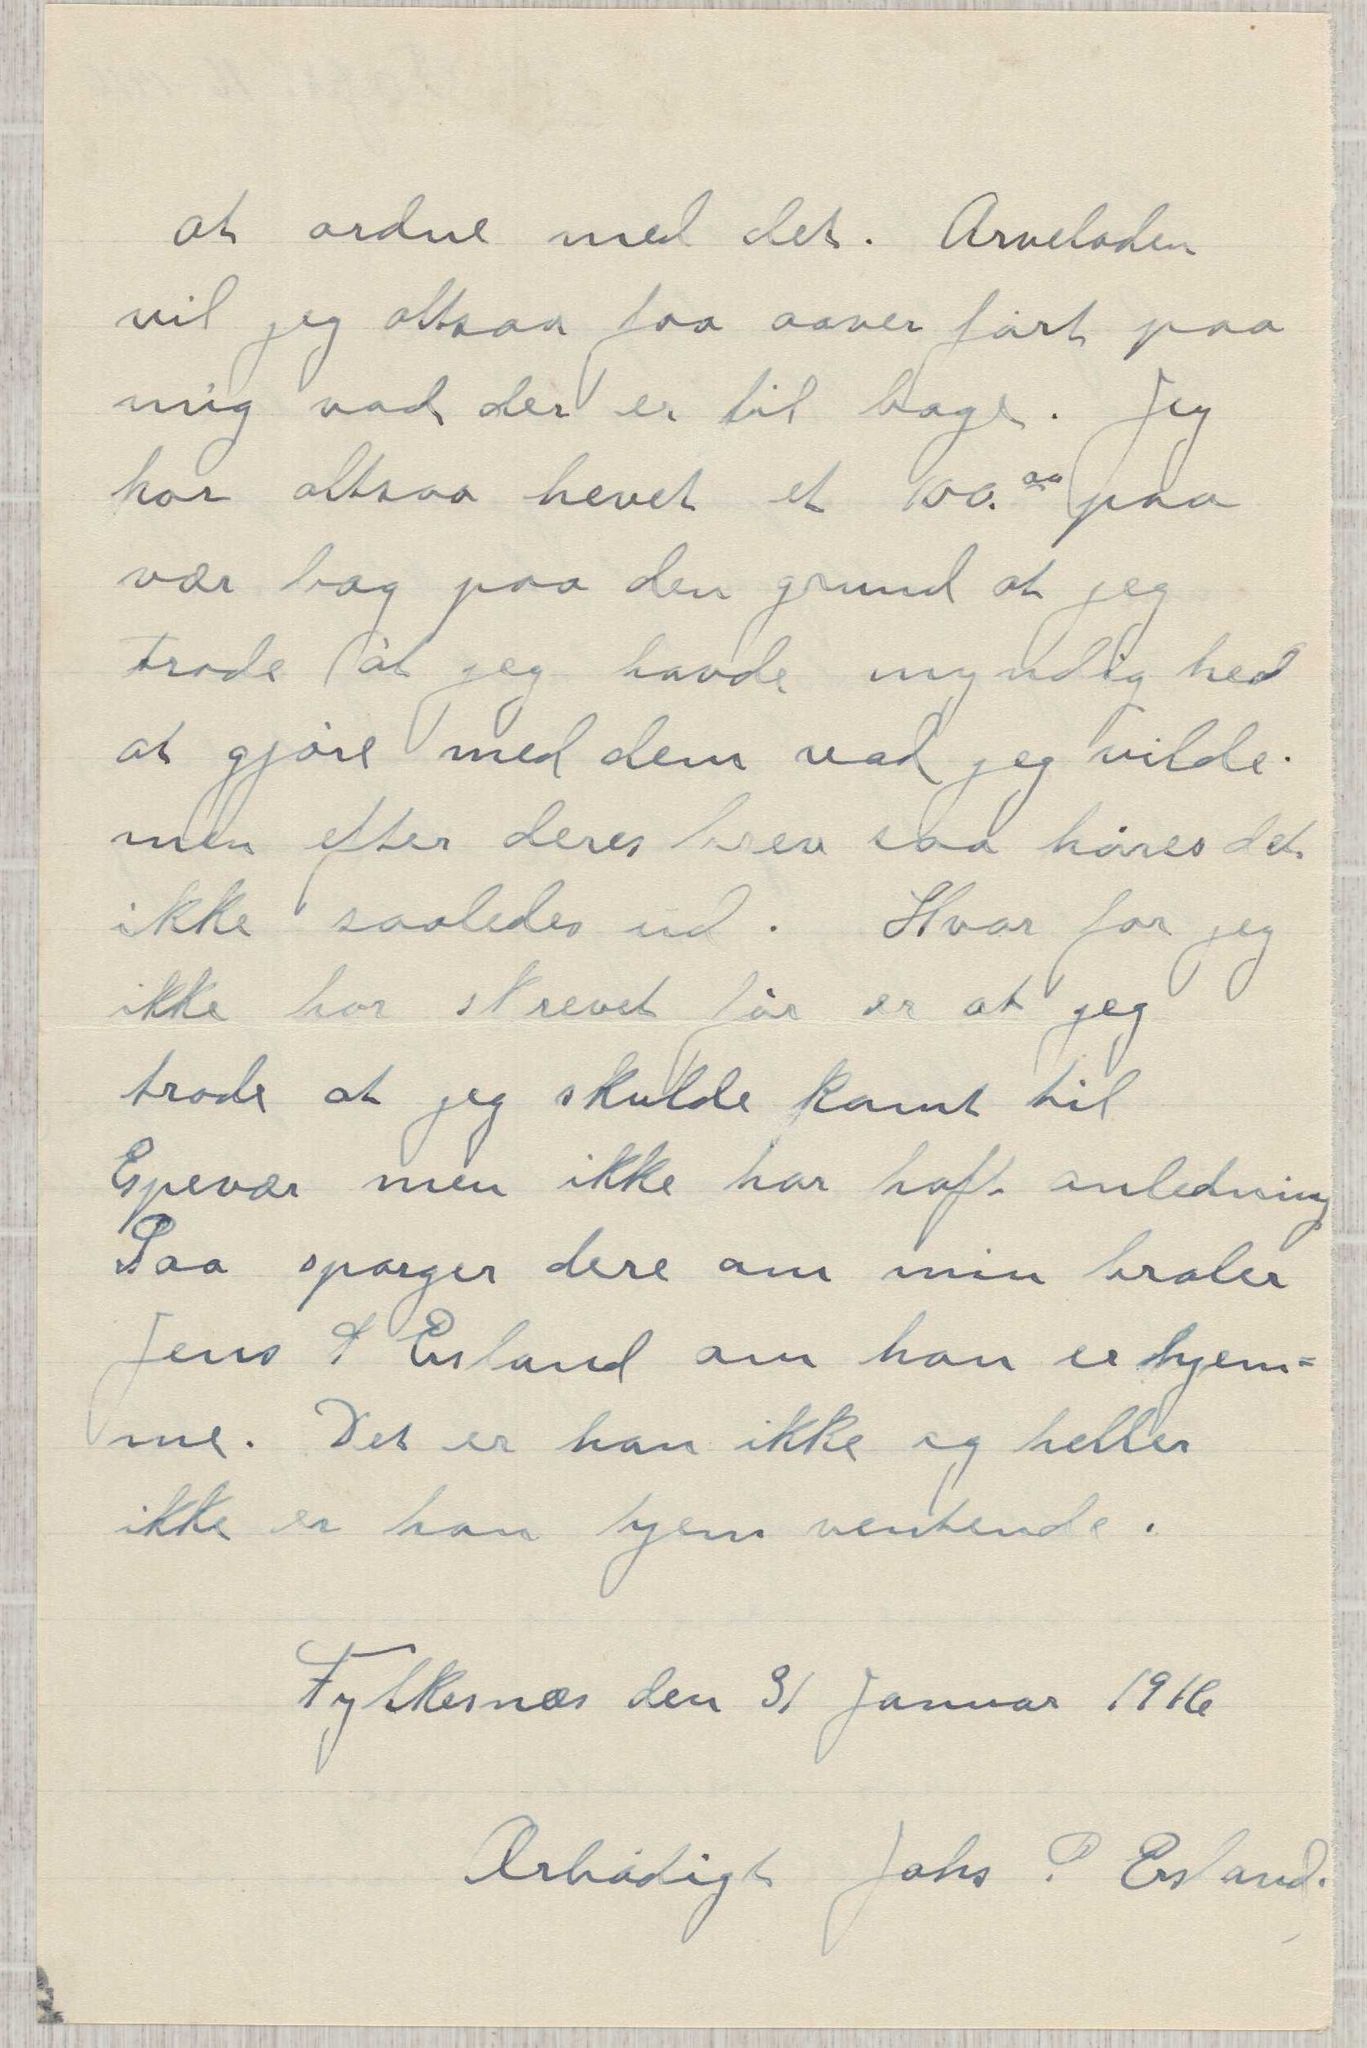 at ordne med det. Arveloden
vil jeg altsaa faa aaver ført paa
mig vad der er til bage. Jeg
har altsaa hevet et 100.00 paa
vær bog paa den grund at jeg
trode at jeg havde myndighed
at gjøre med dem vad jeg vilde.
men efter deres brev saa høres det
ikke saaledes ud. Hvor for jeg
ikke har skrevet før er at jeg
trode at jeg skulde komt til
Espevær men ikke har haft anledning
Saa spørger dere om min broder
Jens P Ersland om han er hjem=
me. Det er han ikke og heller
ikke er han hjem ventende.
Fylkesnæs den 31 Januar 1916
Ærbødigt Johs P Ersland.